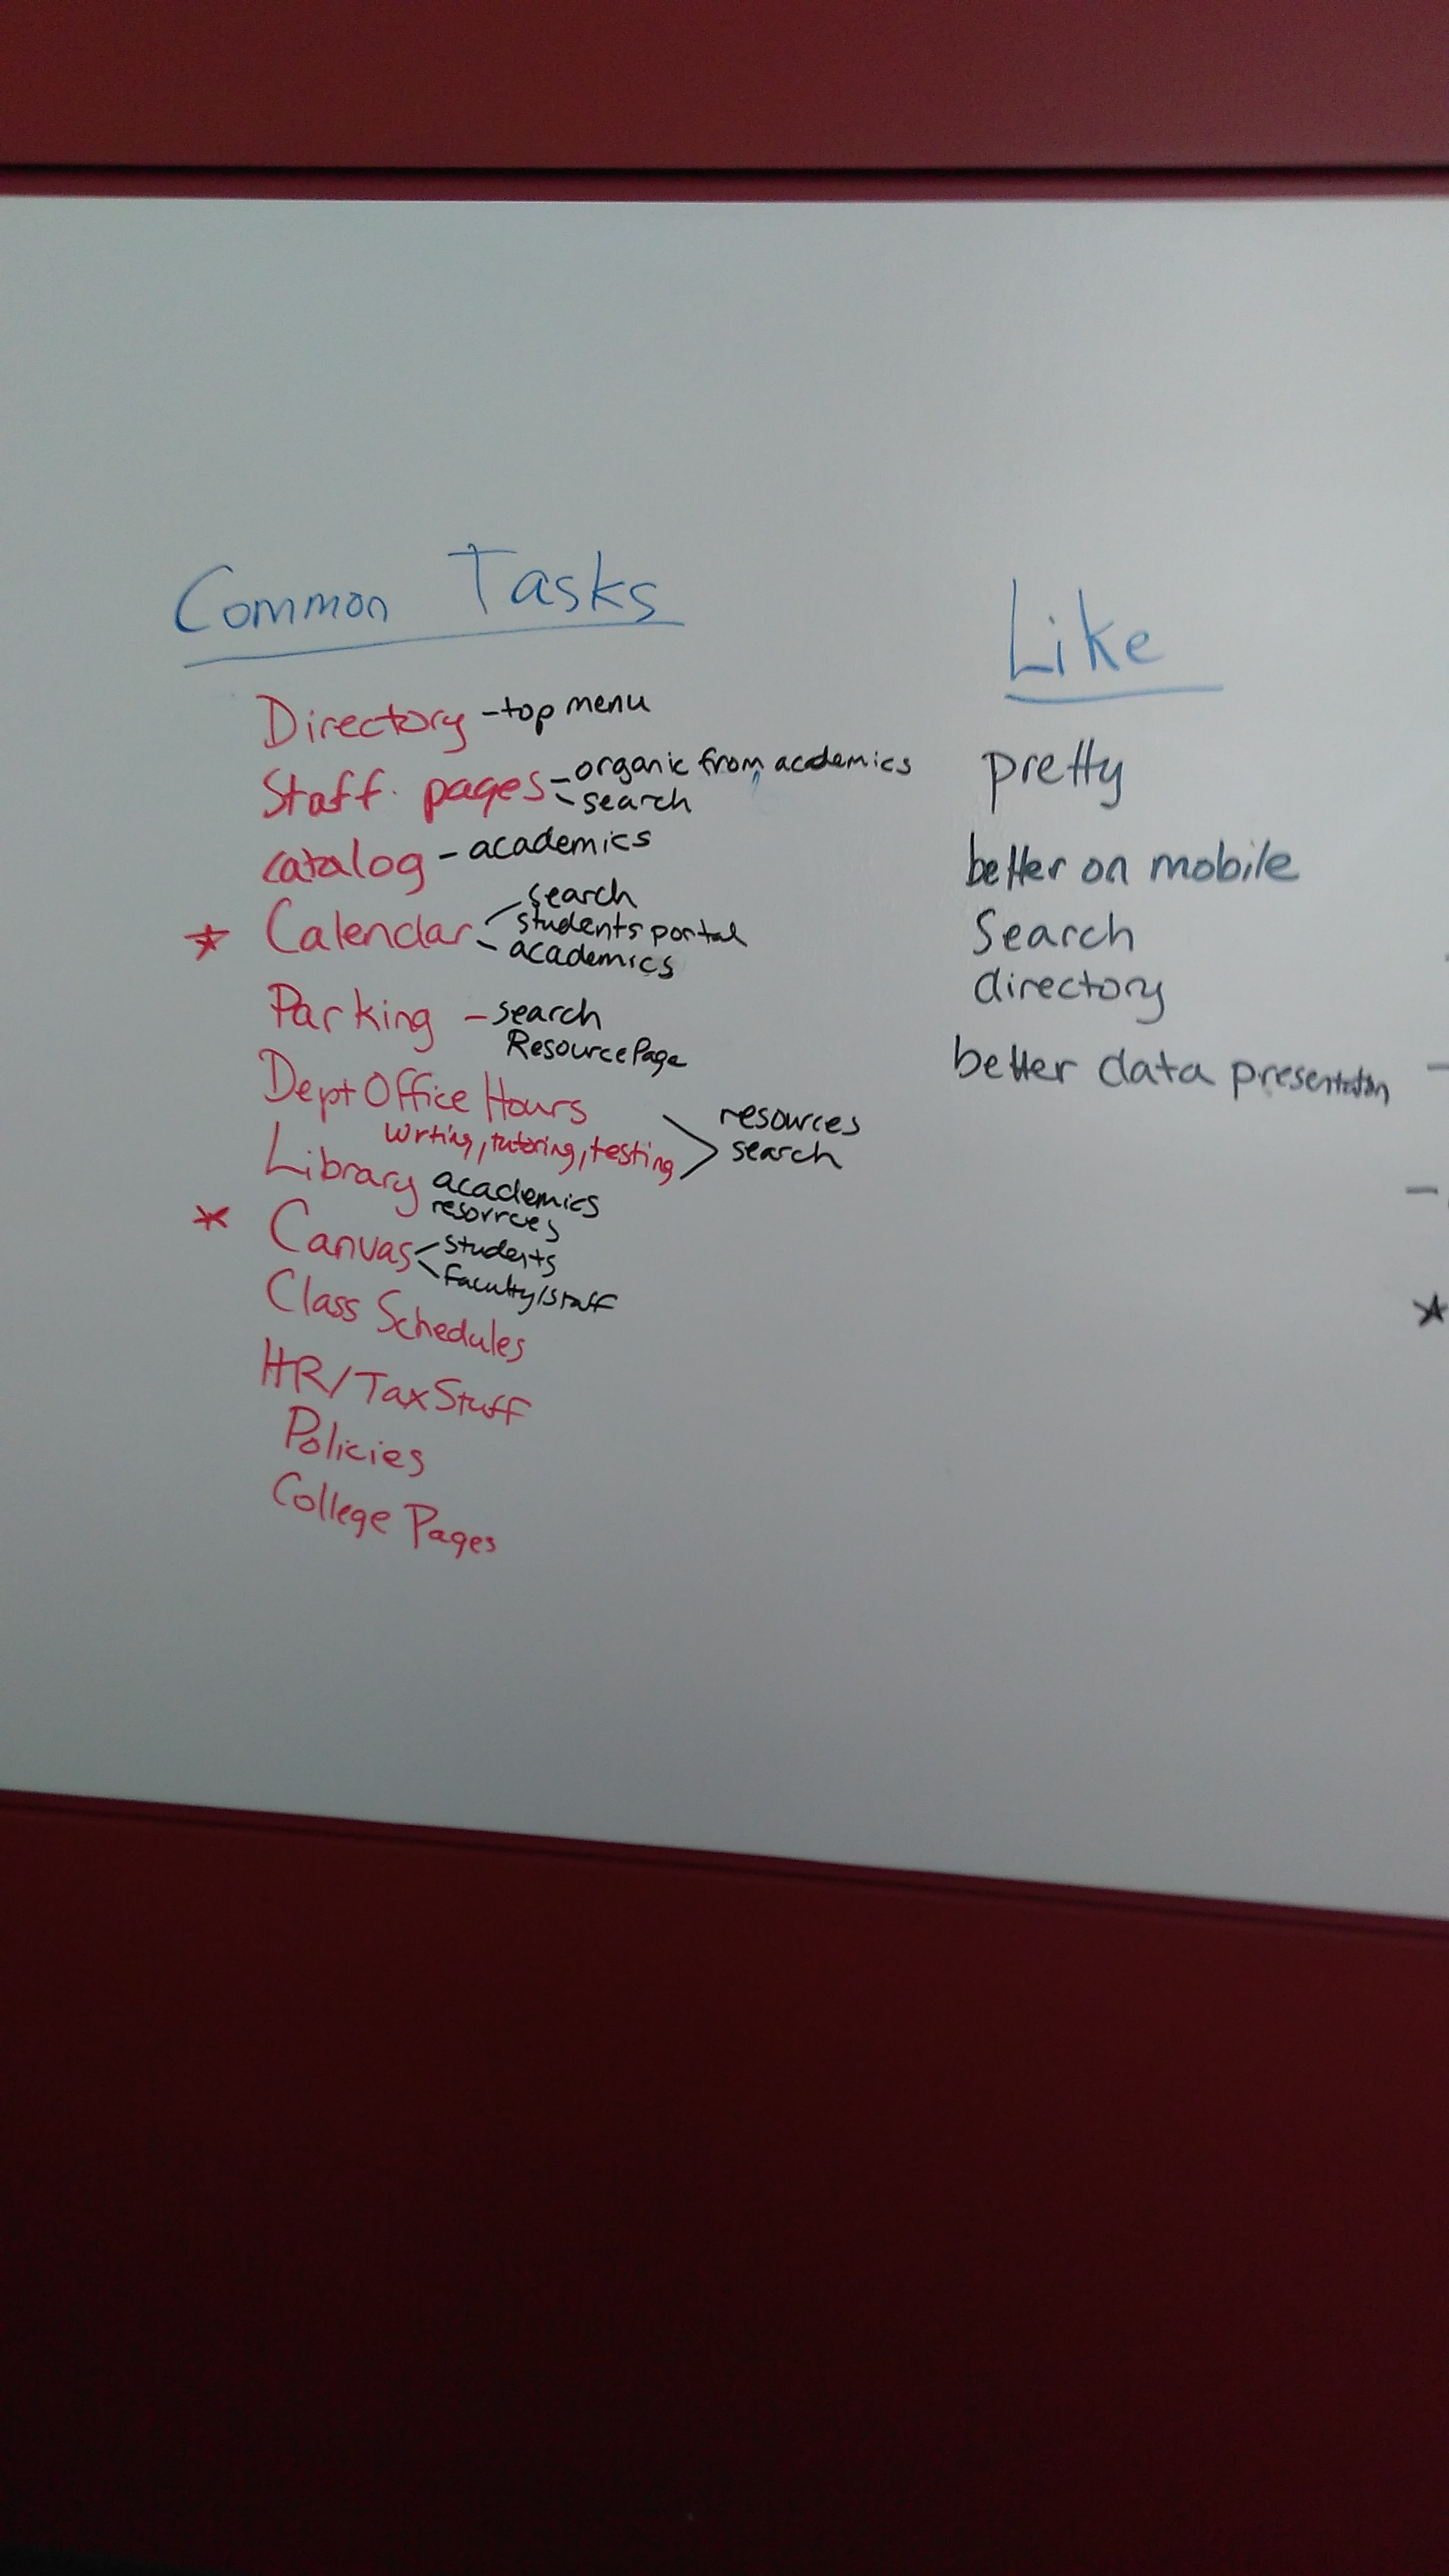 Common Tasks
Directory - top menu
Staff pages - organic from academics
- search
catalog - academics
search
★ Calendar students portal
- academics
Parking - search
Resource Page
Dept Office Hours
writing, tutoring, testing
resources
search
Library academics
resources
★ Canvas students
faculty/staff
Class Schedules
HR/Tax Stuff
Policies
College Pages
Like
pretty
better on mobile
Search
directory
better data presentation